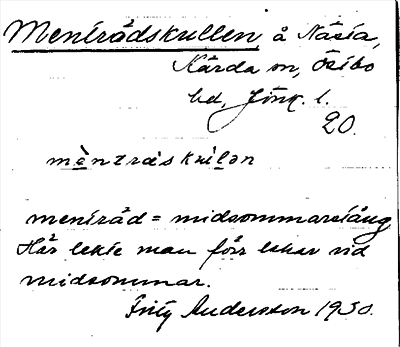 Menträdskullen, å Näsia,
Kärda sn, Östbo
hd, Jönk. l.
20.
mènträskṳlən
menträd = midsommarstång
Här lekte man förr lekar vid
midsommar.
Fritz Andersson 1930.